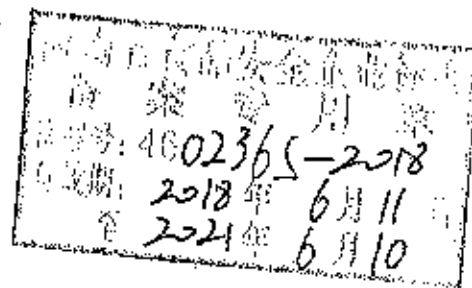 备案专用章
备案号: 460236S—2018
有效期: 2018年6月11日
至 2021年6月10